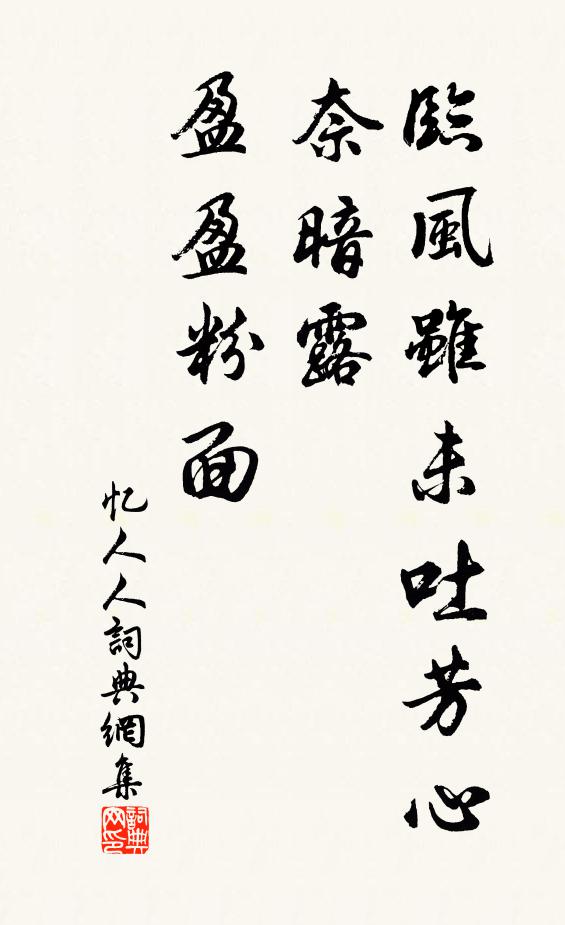 臨風雖未吐芳心
奈暗露
盈盈粉面
忆人人詞典網集
詞典网印